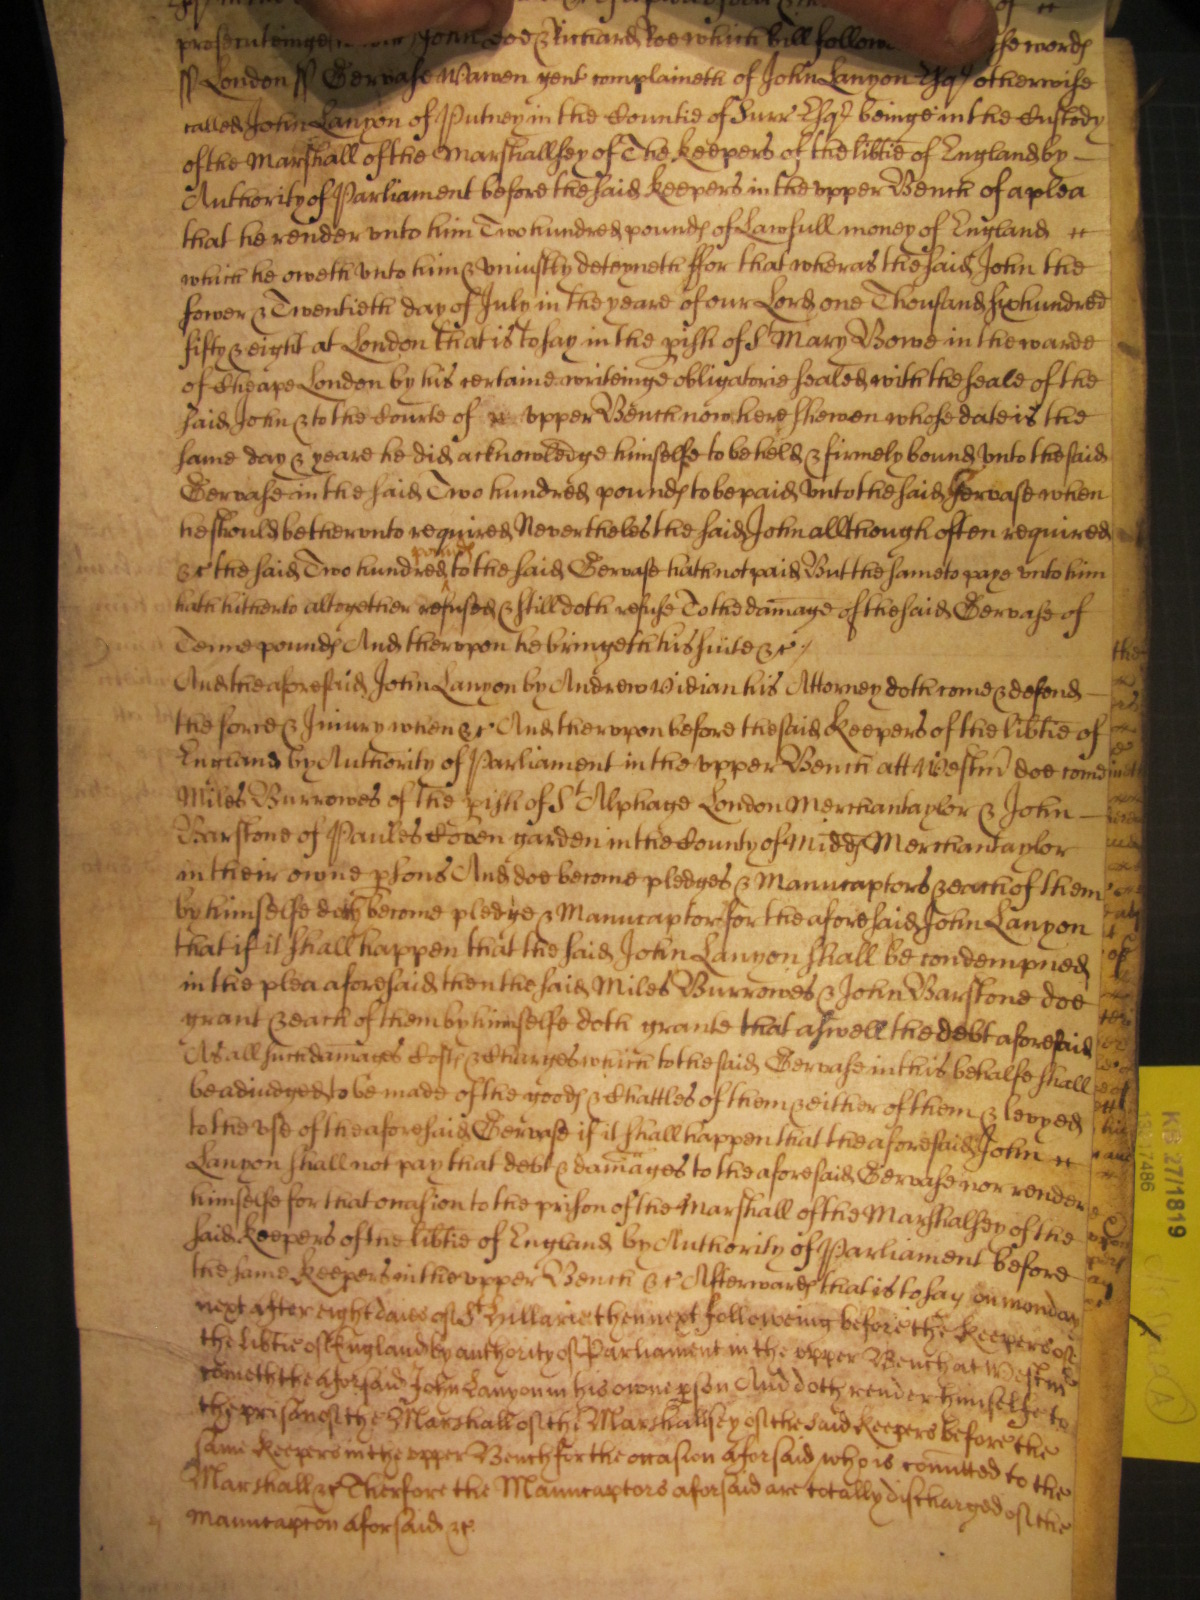 prosecuteinge John Doe & Richard Roe which bill follow words
ss London ss Gervase Warren gent complaineth of John Lanyon Esqr otherwise
called John Lanyon of Putney in the Countie of Surr Esqr beinge in the Custody
of the Marshall of the Marshallsey of The Keepers of the libtie of England by
Authority of Parliament before the said Keepers in the upper Bench of a plea
that he render unto him Two hundred pounds of Lawfull money of England
which he oweth unto him & uniustly deteyneth ffor that wheras the said John the
fower & Twentieth day of July in the yeare of our Lord one Thousand six hundred
fifty & eight at London that is to say in the pish of St Mary Bowe in the warde
of Cheape London by his certaine writeinge obligatorie sealed with the seale of the
said John & to the Courte of upper Bench now here shewen whose date is the
same day & yeare he did acknowledge himselfe to be held & firmely bound unto the said
Gervase in the said Two hundred pounds to be paid unto the said Gervase when
he should be therunto required Neverthelesse the said John allthough often required
&c the said Two hundred pounds to the said Gervase hath not paid But the same to paye unto him
hath hitherto altogether refused & still doth refuse To the damage of the said Gervase of
Tenne pounds And therupon he bringeth his suite &c /
And the aforesaid John Lanyon by Andrew Vidian his Attorney doth come & defend
the force & Iniury when &c And therupon before the said Keepers of the libtie of
England by Authority of Parliament in the upper Bench att Westmr doe come
Miles Burrowes of the pish of St Alphage London Merchantaylor & John
Barstone of Paules Coven garden in the County of Midds Merchantaylor
in their owne psons And doe become pledges & Manucaptors & each of them
by himselfe doth become pledge & Manucaptor for the aforesaid John Lanyon
that if it shall happen that the said John Lanyon shall be condempned
in the plea aforesaid then the said Miles Burrowes & John Barstone doe
grant & each of them by himselfe doth grante that aswell the debt aforesaid
As all such damages Costs & Charges which to the said Gervase in this behalfe shall
be adiudged to be made of the goods & Chattles of them & either of them & levyed
to the use of the aforesaid Gervase if it shall happen that the aforesaid John
Lanyon shall not pay that debt & damages to the aforesaid Gervase nor render
himselfe for that occasion to the prison of the Marshall of the Marshalsey of the
said Keepers of the libtie of England by Authority of Parliament before
the same Keepers in the upper Bench &c Afterwards that is to say on monday
next after eight daies of St Hillarie then next followeing before the Keepers of
the libtie of England by authority of Parliament in the upper Bench at Westmr
cometh the aforsaid John Lanyon in his owne pson And doth render himselfe to
the prison of the Marshall of the Marshallsey of the said Keepers before the
same Keepers in the upper Bench for the occasion aforsaid who is comitted to the
Marshall &c Therfore the Manucaptors aforsaid are totally discharged of the
manucapcon aforsaid &c
KB 27/1819